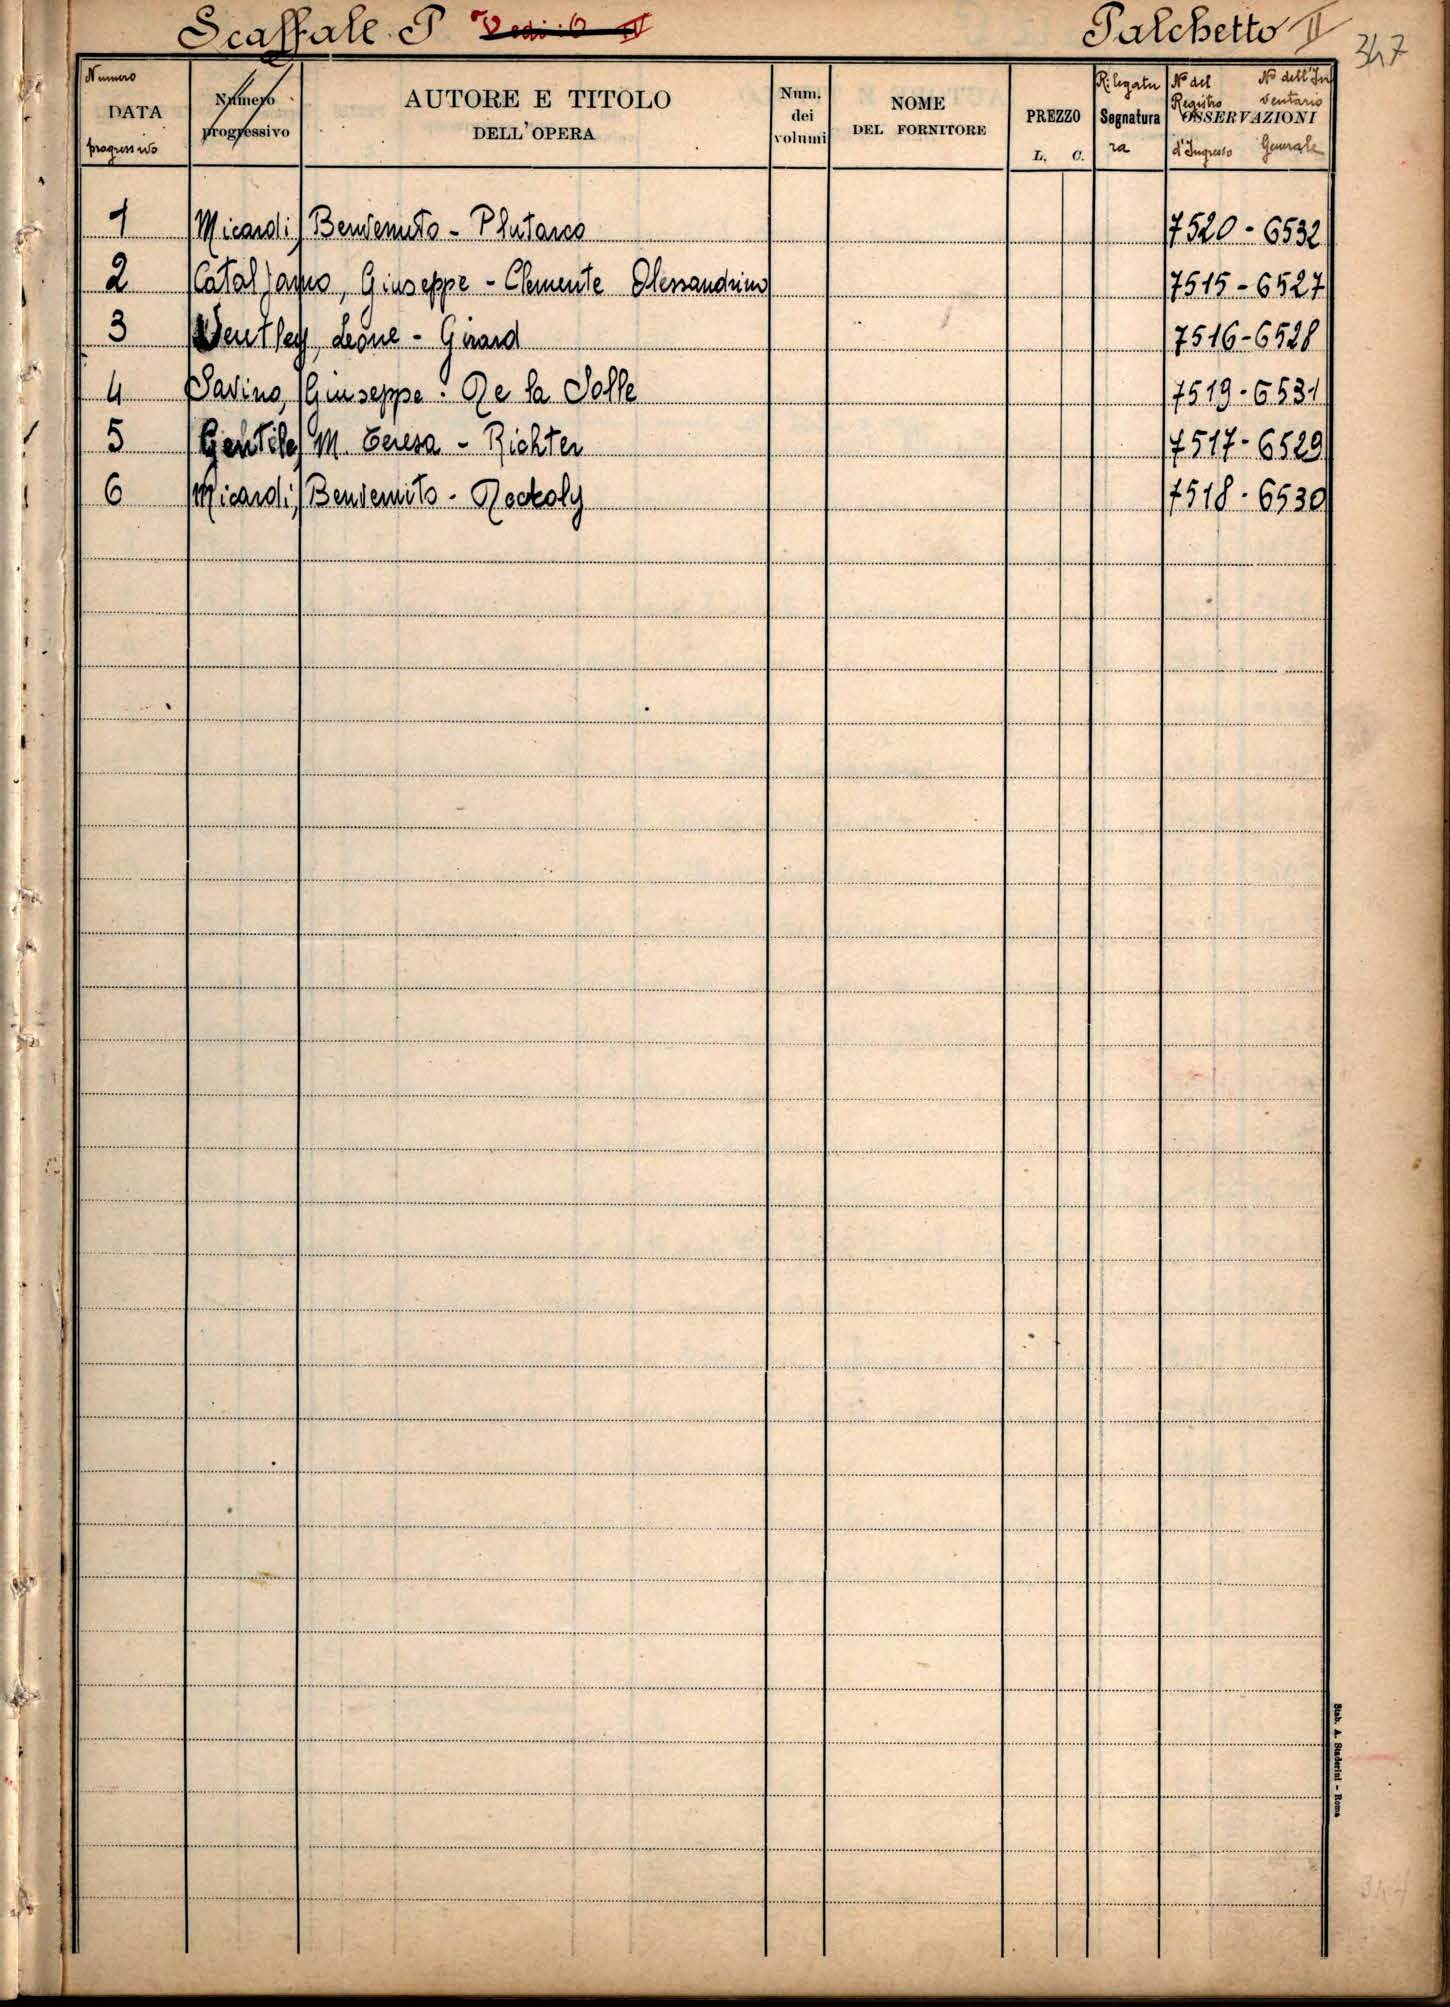 Scaffale P Vedi: O IV Palchetto II
347
Numero DATA progressivo
Numero progressivo
AUTORE E TITOLO
DELL'OPERA
Num. dei volumi
NOME
DEL FORNITORE
PREZZO
L. C.
Rilegatu Segnatura ra
Nº del Registro d'Ingresso
Nº dell'In ventario Generale
OSSERVAZIONI
1 Micardi, Benvenuto - Plutarco 7520 - 6532
2 Catalfamo, Giuseppe - Clemente Alessandrino 7515 - 6527
3 Ventley, Leone - Girard 7516 - 6528
4 Savino, Giuseppe - De la Salle 7519 - 6531
5 Gentile, M. Teresa - Richter 7517 - 6529
6 Micardi, Benvenuto - 7518 - 6530
Stab. A. Staderini - Roma